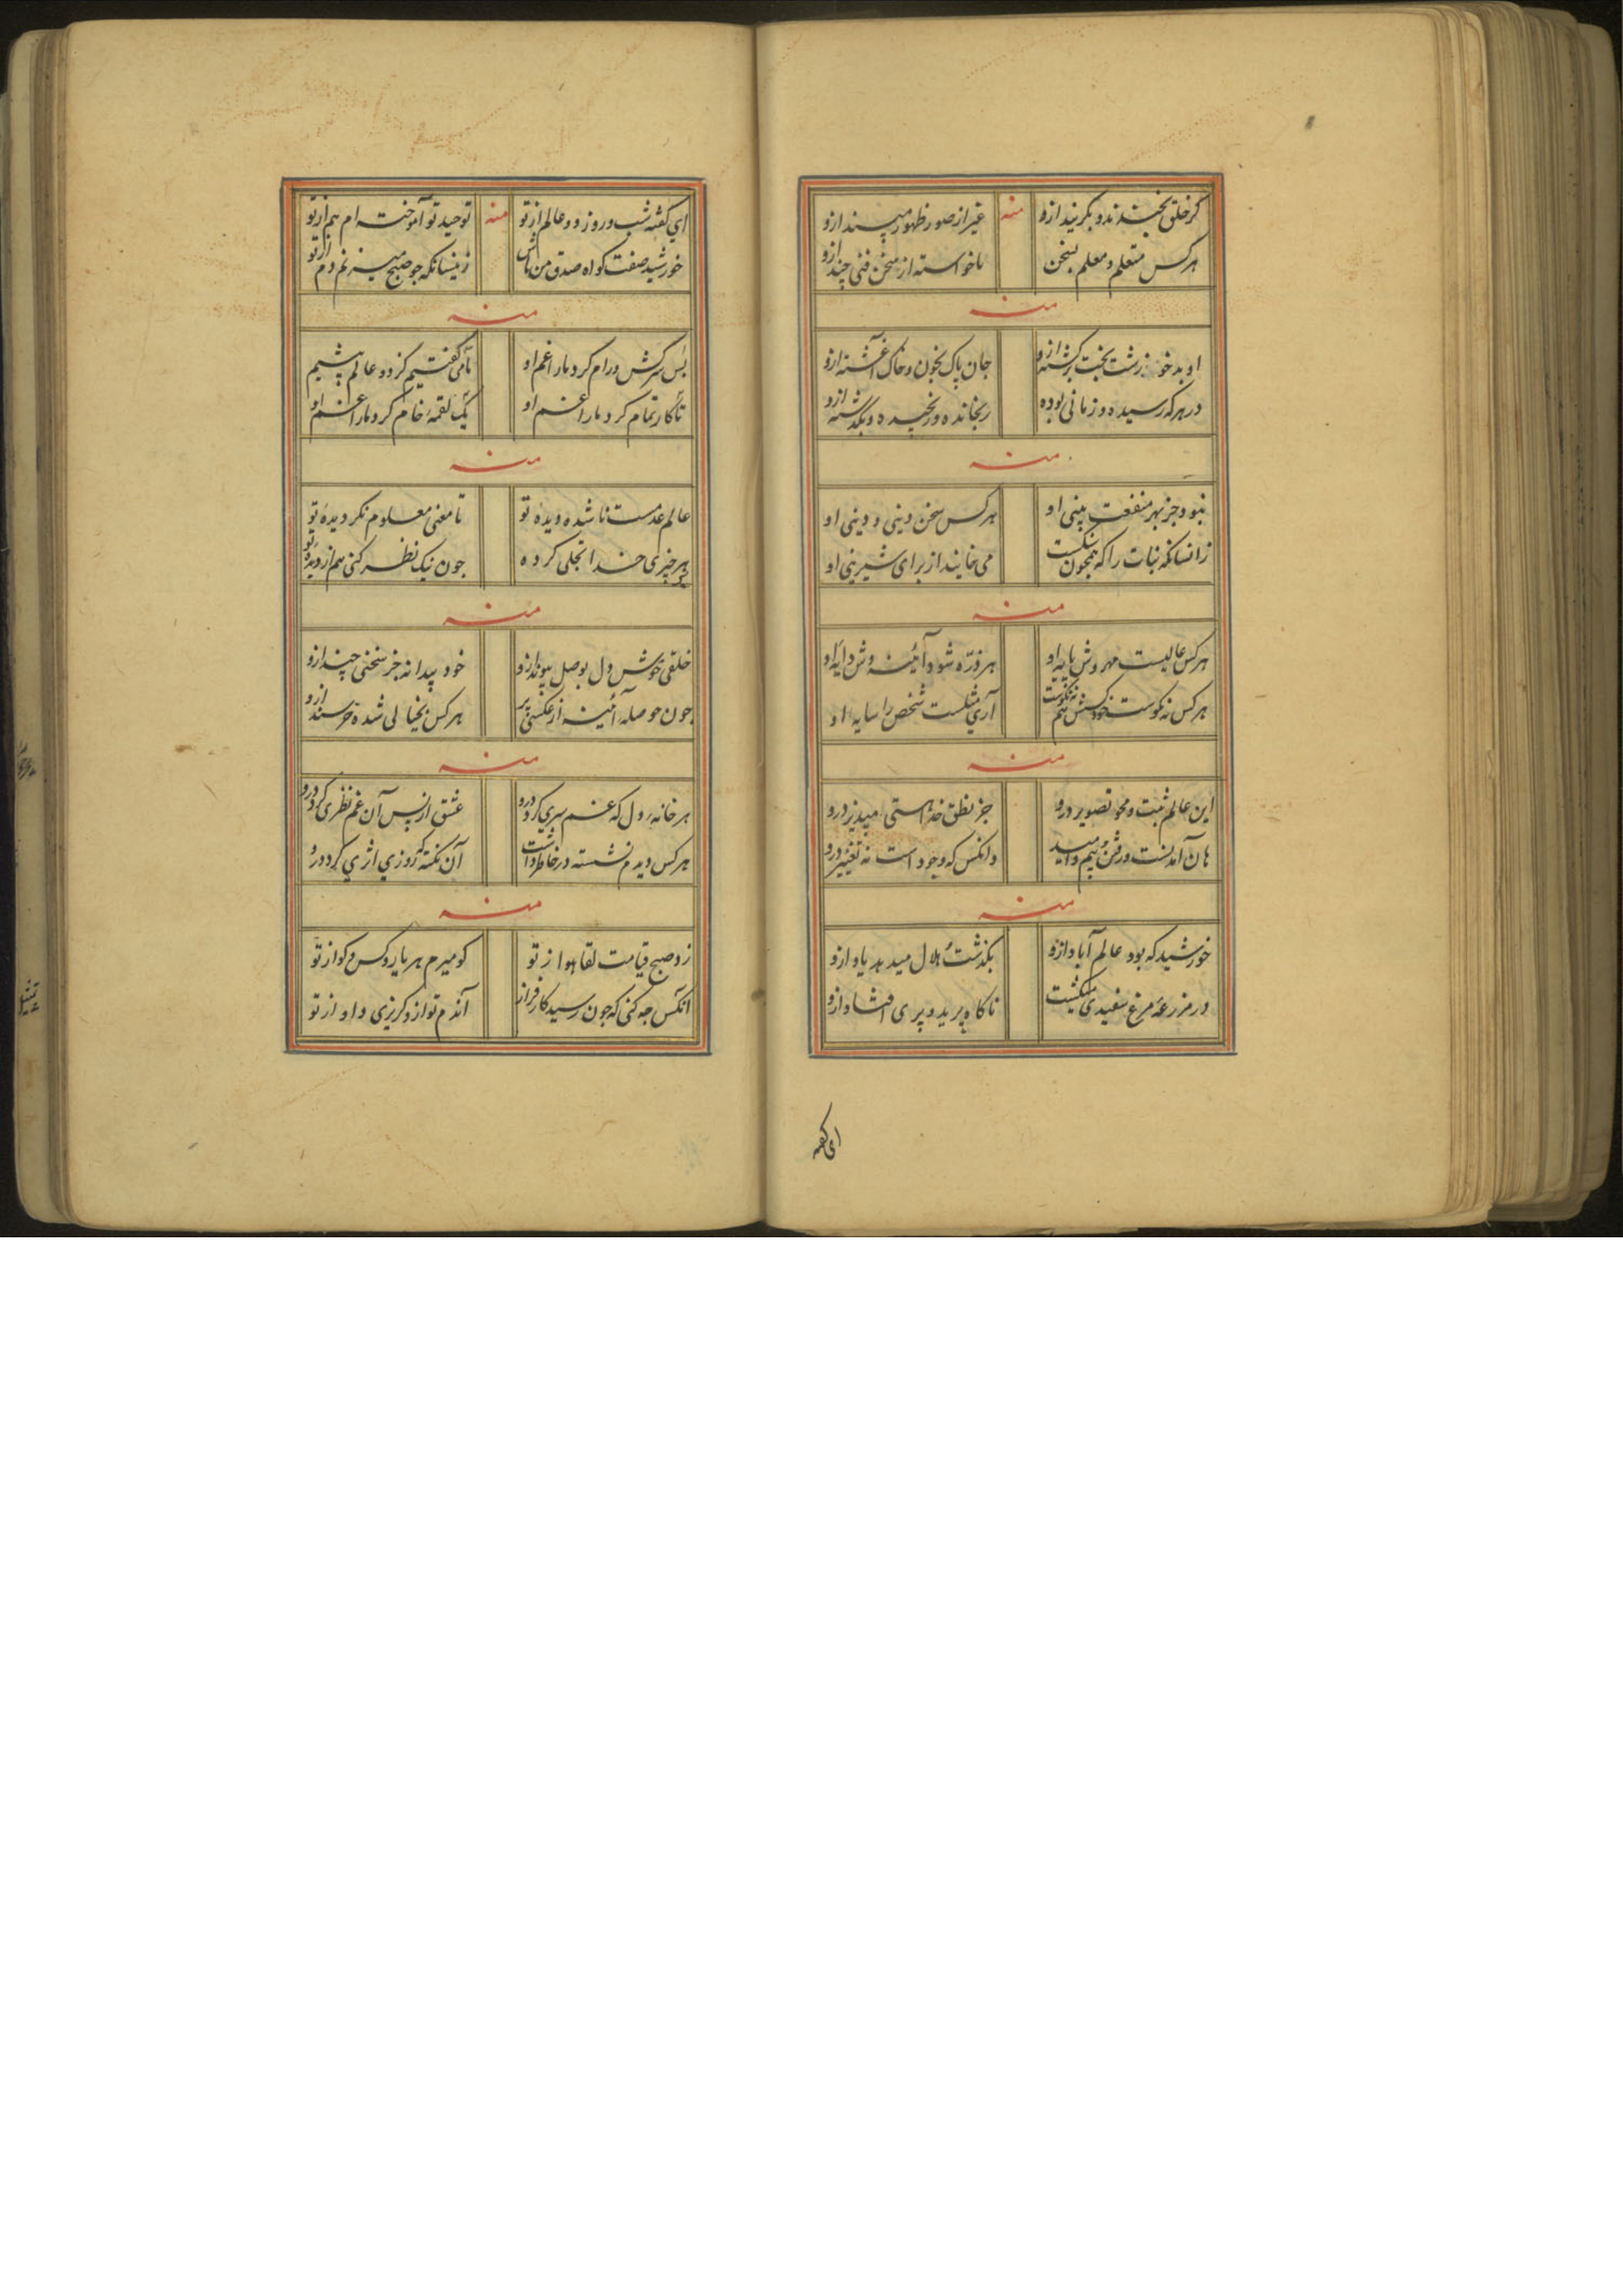 گر خلق بخندند و بگریند ازو منه غیر از صور ظهور مپسند ازو
هر کس متعلم و معلم بسخن ناخواسته از سخن فنی چند ازو
منه
او بدخو زشت بخت برگشته ازو جان پاک بخون و خاک آغشته ازو
در هر که رسیده دو زمانی بوده رنجانده و رنجیده و بگذشته ازو
منه
نبود جز بهر منفعت بینی او هر کس سخن دینی و دینی او
زانسانکه نبات را که همچون نیست می خایند از برای شیرینی او
منه
هر کس عالیست مهروش پایه او هر ذره شود آئینه وش دایه او
هر کس نه نکوست خودکشش هم نه نکوست آری مثلست شخص را سایه او
منه
این عالم ثبت و محو تصویر درو جز نطق خدا هستی مپذیر درو
هان آمدنست و رفتن و بیم و امید وانکس که وجود است نه تغییر درو
منه
خورشید که بود عالم آباد ازو بگذشت هلال میدهد یاد ازو
در مزرعه مرغ سفیدی میگشت ناگاه پرید و پری افتاد ازو
ای گفته
ای گفته شب و روز دو عالم از تو منه توحید تو آموخته ام هم از تو
خورشید صفت گواه صدق من باش زینسانکه چو صبح میزنم دم از تو
منه
بس سرکش و رام کرد ما را غم او تا می گفتیم کز دو عالم بیشیم
تا کار تمام کرد ما را غم او یک لقمه خام کرد ما را غم او
منه
عالم عدمست نا شده دیده تو تا معنی معلوم نگردیده تو
هر چیزی خدا تجلی کرده چون نیک نظر کنی هم از دیده تو
منه
خلقی خوش دل بوصل پیوند ازو خود پیدا نه جز سخنی چند ازو
چون حوصله آئینه از عکسی پر هر کس بخیالی شده خرسند ازو
منه
هر خانه دل که غم سری کرد درو عشق از پس آن غم نظری کرد درو
هر کس دیدم نشسته در خاطر داشت آن نکته که روزی اثری کرد درو
منه
زد صبح قیامت لقا هو از تو کو میرم هر یار و کس و کو از تو
آنکس چه کنی که چون رسید کار فراز آندم تو ازو گریزی و او از تو